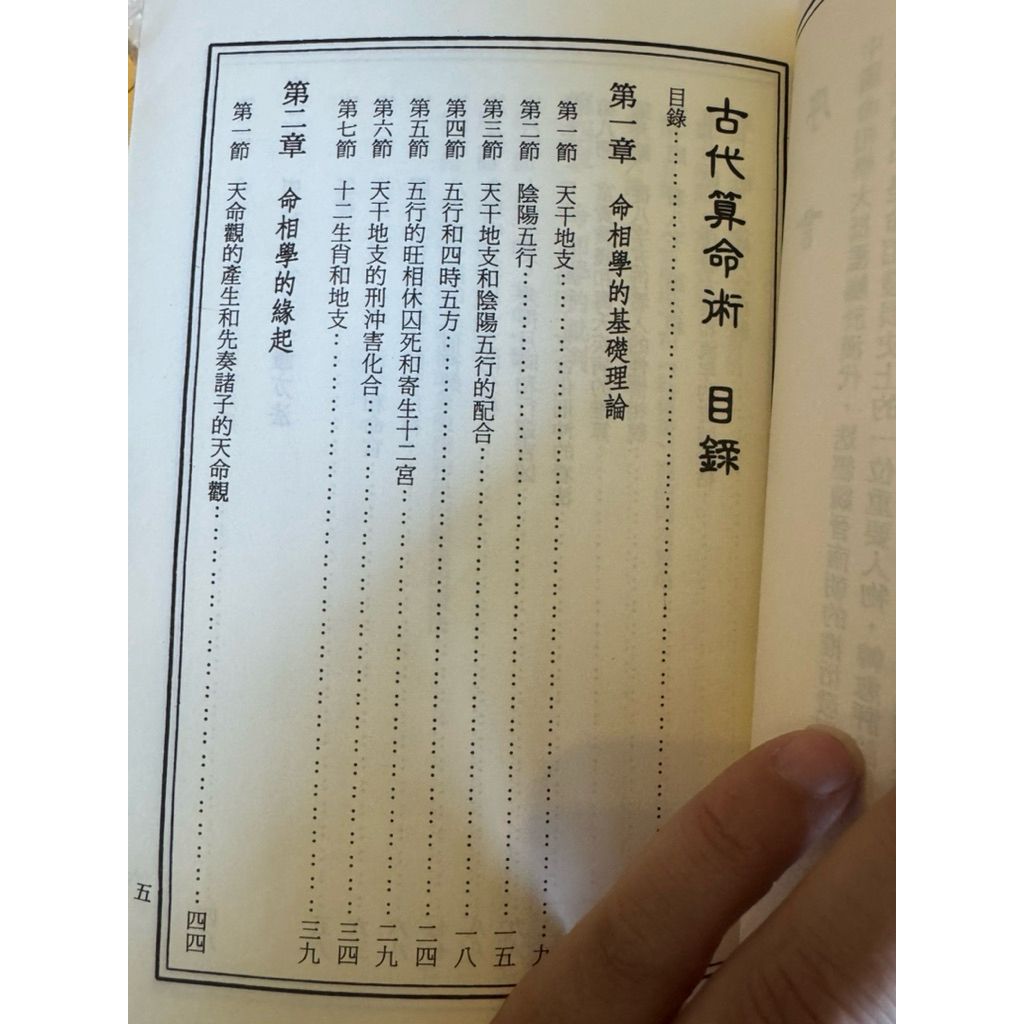 古代算命術 目錄
目錄……………………………………
第一章 命相學的基礎理論
第一節 天干地支……………………………………
第二節 陰陽五行……………………………………一五
第三節 天干地支和陰陽五行的配合……………………………………一八
第四節 五行和四時五方……………………………………二四
第五節 五行的旺相休囚死和寄生十二宮……………………………………二九
第六節 天干地支的刑沖害化合……………………………………三四
第七節 十二生肖和地支……………………………………三九
第二章 命相學的緣起
第一節 天命觀的產生和先奏諸子的天命觀……………………………………四四
五